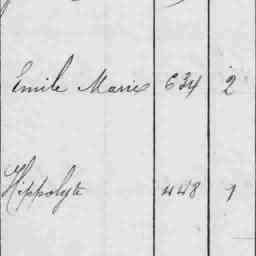 Emile Marie 634 2
Hippolyte 448 1